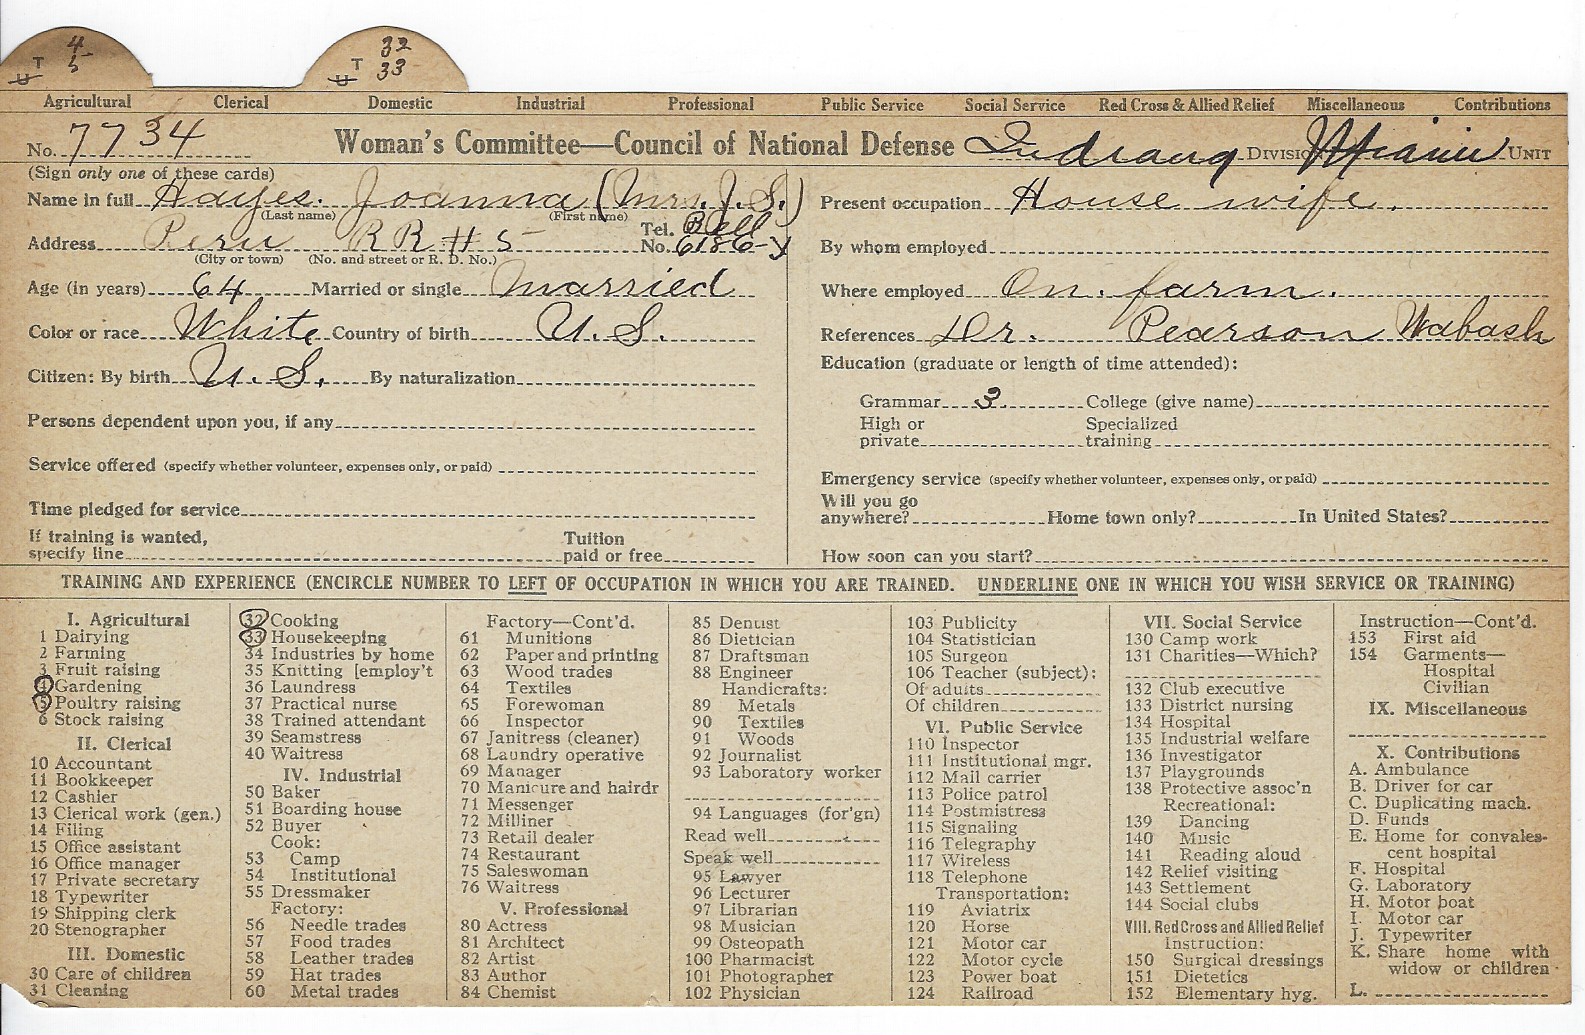 4 32
T 5 T 33
U U
Agricultural Clerical Domestic Industrial Professional Public Service Social Service Red Cross & Allied Relief Miscellaneous Contributions
No. 7734 Woman's Committee—Council of National Defense Indiana Division Miami Unit
(Sign only one of these cards)
Name in full Hayes. Joanna (Mrs. J. S.)
(Last name) (First name)
Address Peru RR # 5 Tel. No. Bell 6186-Y
(City or town) (No. and street or R. D. No.)
Age (in years) 64 Married or single Married
Color or race White Country of birth U. S.
Citizen: By birth U. S. By naturalization
Persons dependent upon you, if any
Service offered (specify whether volunteer, expenses only, or paid)
Time pledged for service
If training is wanted, specify line Tuition paid or free
Present occupation House wife.
By whom employed
Where employed On. farm.
References Dr. Pearson Wabash
Education (graduate or length of time attended):
Grammar 3. College (give name)
High or private Specialized training
Emergency service (specify whether volunteer, expenses only, or paid)
Will you go anywhere? Home town only? In United States?
How soon can you start?
TRAINING AND EXPERIENCE (ENCIRCLE NUMBER TO LEFT OF OCCUPATION IN WHICH YOU ARE TRAINED. UNDERLINE ONE IN WHICH YOU WISH SERVICE OR TRAINING)
I. Agricultural
1 Dairying
2 Farming
3 Fruit raising
4 Gardening
5 Poultry raising
6 Stock raising
II. Clerical
10 Accountant
11 Bookkeeper
12 Cashier
13 Clerical work (gen.)
14 Filing
15 Office assistant
16 Office manager
17 Private secretary
18 Typewriter
19 Shipping clerk
20 Stenographer
III. Domestic
30 Care of children
31 Cleaning
32 Cooking
33 Housekeeping
34 Industries by home
35 Knitting [employ't
36 Laundress
37 Practical nurse
38 Trained attendant
39 Seamstress
40 Waitress
IV. Industrial
50 Baker
51 Boarding house
52 Buyer
Cook:
53 Camp
54 Institutional
55 Dressmaker
Factory:
56 Needle trades
57 Food trades
58 Leather trades
59 Hat trades
60 Metal trades
Factory—Cont'd.
61 Munitions
62 Paper and printing
63 Wood trades
64 Textiles
65 Forewoman
66 Inspector
67 Janitress (cleaner)
68 Laundry operative
69 Manager
70 Manicure and hairdr
71 Messenger
72 Milliner
73 Retail dealer
74 Restaurant
75 Saleswoman
76 Waitress
V. Professional
80 Actress
81 Architect
82 Artist
83 Author
84 Chemist
85 Dentist
86 Dietician
87 Draftsman
88 Engineer
Handicrafts:
89 Metals
90 Textiles
91 Woods
92 Journalist
93 Laboratory worker
94 Languages (for'gn)
Read well
Speak well
95 Lawyer
96 Lecturer
97 Librarian
98 Musician
99 Osteopath
100 Pharmacist
101 Photographer
102 Physician
103 Publicity
104 Statistician
105 Surgeon
106 Teacher (subject):
Of adults
Of children
VI. Public Service
110 Inspector
111 Institutional mgr.
112 Mail carrier
113 Police patrol
114 Postmistress
115 Signaling
116 Telegraphy
117 Wireless
118 Telephone
Transportation:
119 Aviatrix
120 Horse
121 Motor car
122 Motor cycle
123 Power boat
124 Railroad
VII. Social Service
130 Camp work
131 Charities—Which?
132 Club executive
133 District nursing
134 Hospital
135 Industrial welfare
136 Investigator
137 Playgrounds
138 Protective assoc'n
Recreational:
139 Dancing
140 Music
141 Reading aloud
142 Relief visiting
143 Settlement
144 Social clubs
VIII. Red Cross and Allied Relief
Instruction:
150 Surgical dressings
151 Dietetics
152 Elementary hyg.
Instruction—Cont'd.
153 First aid
154 Garments—
Hospital
Civilian
IX. Miscellaneous
X. Contributions
A. Ambulance
B. Driver for car
C. Duplicating mach.
D. Funds
E. Home for convales-
cent hospital
F. Hospital
G. Laboratory
H. Motor boat
I. Motor car
J. Typewriter
K. Share home with
widow or children
L.